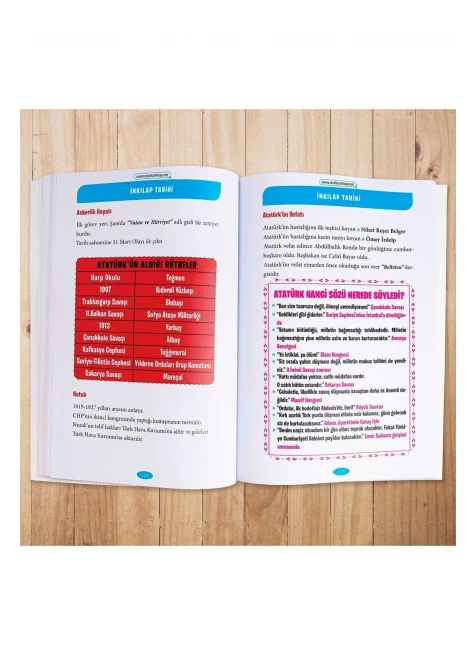 İNKILAP TARİHİ
Askerlik Hayatı
İlk görev yeri Şamda "Vatan ve Hürriyet" adlı gizli bir cemiyet
kurdu.
Tarih sahnesine 31 Mart Olayı ile çıktı
ATATÜRK'ÜN ALDIĞI RÜTBELER
Harp Okulu Teğmen
1907 Kıdemli Yüzbaşı
Trablusgarp Savaşı Binbaşı
II.Balkan Savaşı Sofya Ateşe Militerliği
1913 Yarbay
Çanakkale Savaşı Albay
Kafkanya Cephesi Tuğgeneral
Suriye-Filistin Cephesi Yıldırım Orduları Grup Komutanı
Sakarya Savaşı Mareşal
Nutuk
1919-1927 yılları arasını anlatır.
CHP'nin ikinci kongresinde yaptığı konuşmanın metnidir.
Nutuk'un telif hakları Türk Hava Kurumu'na aittir ve gelirleri
Türk Hava Kurumu'na aktarılır.
İNKILAP TARİHİ
Atatürk'ün Vefatı
Atatürk'ün hastalığına ilk teşhisi koyan Nihat Reşet Belger
Atatürk'ün hastalığına kesin tanıyı koyan Ömer İrdelp
Atatürk vefat edince Abdülhalik Renda bir günlüğüne cumhur-
başkanı oldu. Başbakan ise Celal Bayar oldu.
Atatürk'ün vefat etmeden önce okuduğu son eser "Belleten" der-
gisidir.
ATATÜRK HANGİ SÖZÜ NEREDE SÖYLEDİ?
"Ben size taarruzu değil, ölmeyi emrediyorum!" Çanakkale Savaşı
"Geldikleri gibi giderler." Suriye Cephesi'nden İstanbul'a döndüğün-
de
"Vatanın bütünlüğü, milletin bağımsızlığı tehlikededir. Milletin
bağımsızlığını yine milletin azim ve kararı kurtaracaktır." Amasya
Genelgesi
"Ya istiklal, ya ölüm!" Sivas Kongresi
"Siz orada yalnız düşmanı değil, milletin makus talihini de yendi-
niz." II.İnönü Savaşı sonrası
"Hattı müdafaa yoktur, sathı müdafaa vardır.
O satıh bütün vatandır." Sakarya Savaşı
"Cehaletle, ilkellikle savaş düşmanla savaştan daha az önemli de-
ğildir." Maarif Kongresi
"Ordular, ilk hedefiniz Akdeniz'dir, ileri!" Büyük Taarruz